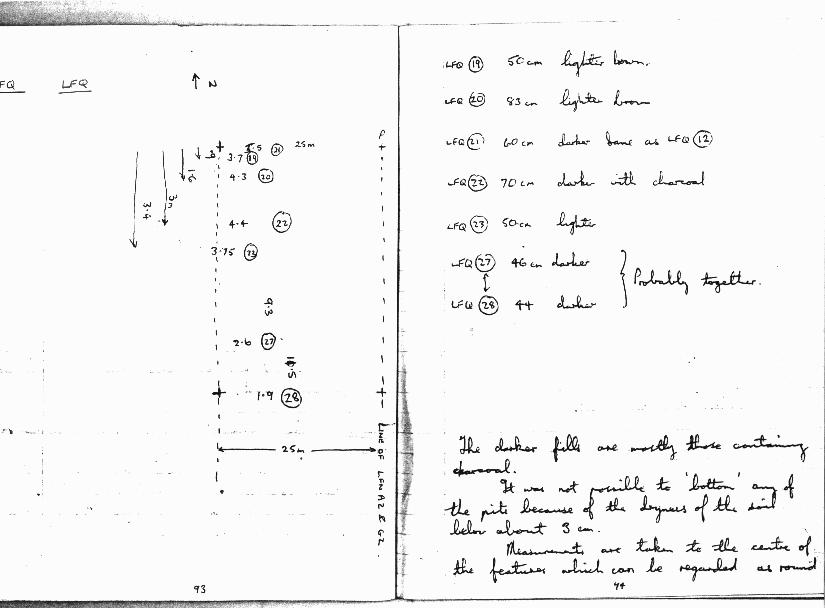 FQ LFQ ↑ N
P
.5 (21) 25m
3.7 (19)
4.3 (20)
1.6
3m
3.4
4.4 (22)
3.75 (23)
9.3
2.6 (27)
1.9 (28)
25m
LINE OF LFN A2 & G2
93
LFQ (19) 50 cm lighter brown.
LFQ (20) 83 cm lighter brown
LFQ (21) 60 cm darker same as LFQ (12)
LFQ (22) 70 cm darker with charcoal
LFQ (23) 50cm lighter
LFQ (27) 46 cm darker
↕ } Probably together.
LFQ (28) 44 darker
The darker fills are mostly those containing
charcoal.
It was not possible to 'bottom' any of
the pits because of the dryness of the soil
below about 3 cm.
Measurements are taken to the centre of
the features which can be regarded as round
94